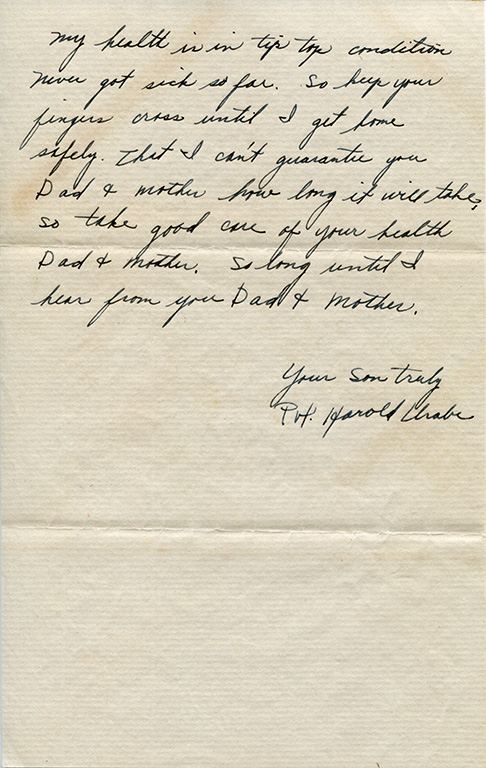 My health is in tip top condition
never got sick so far. So keep your
fingers cross until I get home
safely. That I can't guarantee you
Dad & Mother how long it will take,
so take good care of your health
Dad & Mother. So long until I
hear from you Dad & Mother.
Your Son truly
Pvt. Harold Urabe